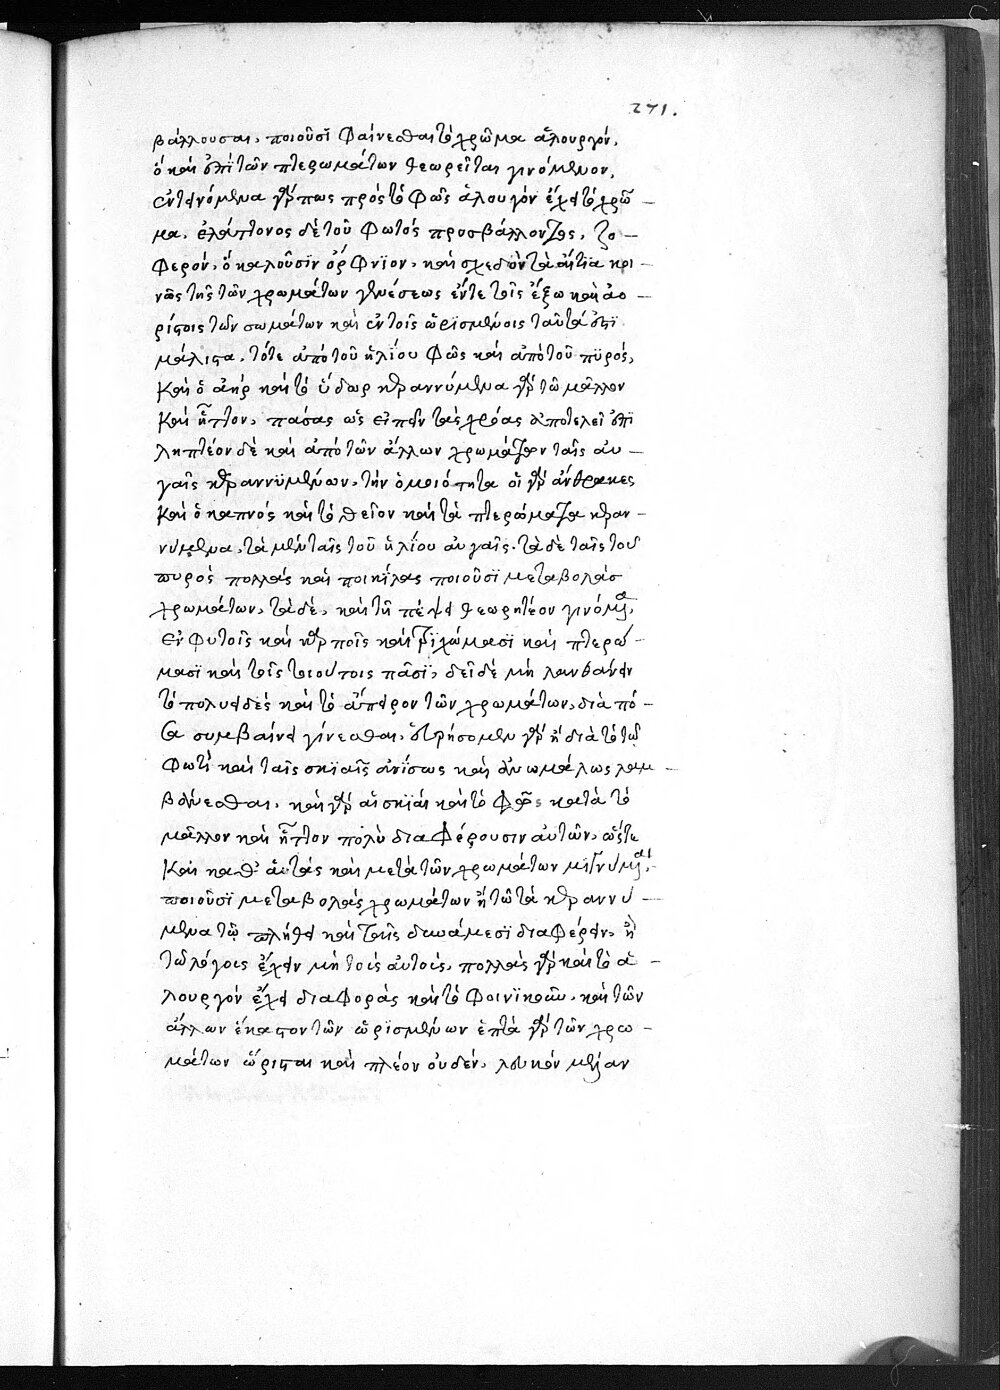 271.
βάλλουσαι, ποιοῦσϊ φαίνεσθαι τὸ χρῶμα ἁλουργόν,
ὃ καὶ ἐπὶ τῶν πτερωμάτων θεωρεῖται γινόμενον,
ἐντεινόμενα γάρ πως πρὸς τὸ φῶς ἁλουργὸν ἔχει τὸ χρῶ –
μα. ἐλάττονος δὲ τοῦ φωτὸς προσβάλλοντος, ζο –
φερόν, ὃ καλοῦσϊν ὄρφνϊον, καὶ σχεδὸν τὰ αἴτϊα κοι –
νῶς τῆς τῶν χρωμάτων γενέσεως ἔν τε τοῖς ἔξω καὶ ἀο –
ρίστοις τῶν σωμάτων καὶ ἐν τοῖς ὡρϊσμένοις ταῦτά ἐστϊ
μάλιστα, τότε ἀπὸ τοῦ ἡλίου φῶς καὶ ἀπὸ τοῦ πϋρός,
καὶ ὁ ἀὴρ καὶ τὸ ὕδωρ κεραννύμενα γὰρ τῶ μᾶλλον
καὶ ἧττον, πάσας ὡς εἰπεῖν τὰς χρόας ἀποτελεῖ ἐπι
ληπτέον δὲ καὶ ἀπὸ τῶν ἄλλων χρωμάτων ταῖς αὐ –
γαῖς κεραννϋμένων, τὴν ὁμοιότητα οἱ γὰρ ἄνθρακες
καὶ ὁ καπνὸς καὶ τὸ θεῖον καὶ τὰ πτερώματα κεραν –
νύμενα, τὰ μὲν ταῖς τοῦ ἡλίου αὐγαῖς. τὰ δὲ ταῖς τοῦ
πυρὸς πολλὰς καὶ ποικίλας ποιοῦσϊ μεταβολὰσ
χρωμάτων, τὰ δὲ, καὶ τῆ πέψει θεωρητέον γινόμενα,
ἐν φυτοῖς καὶ καρποῖς καὶ τρϊχώμασϊ καὶ πτερώ –
μασϊ καὶ τοῖς τοιούτοις πᾶσϊ, δεῖ δὲ μὴ λανθάνειν
τὸ πολυειδὲς καὶ τὸ ἄπειρον τῶν χρωμάτων, διὰ πό –
σα συμβαίνει γίνεσθαι, εὑρήσομεν γὰρ ἢ διὰ τὸ τῶ
φωτὶ καὶ ταῖς σκϊαῖς ἀνίσως καὶ ἀνωμάλως λαμ –
βάνεσθαι, καὶ γὰρ αἱ σκϊαὶ καὶ τὸ φῶς κατὰ τὸ
μᾶλλον καὶ ἧττον πολὺ διαφέρουσιν αὐτῶν, ὥστε
καὶ καθ' αὑτὰς καὶ μετὰ τῶν χρωμάτων μϊγνύμεναι,
ποιοῦσϊ μεταβολὰς χρωμάτων ἢ τῶ τὰ κεραννύ –
μενα τῶ πλήθει καὶ ταῖς δυνάμεσϊ διαφέρειν, ἢ
τῶ λόγοις ἔχειν μὴ τοῖς αὐτοῖς, πολλὰς γὰρ καὶ τὸ ἁ –
λουργὸν ἔχει διαφορὰς καὶ τὸ φοινϊκοῦν, καὶ τῶν
ἄλλων ἕκαστον τῶν ὡρϊσμένων ἑπτὰ γὰρ τῶν χρω –
μάτων ὥρισται καὶ πλέον οὐδέν, λευκὸν μέλαν